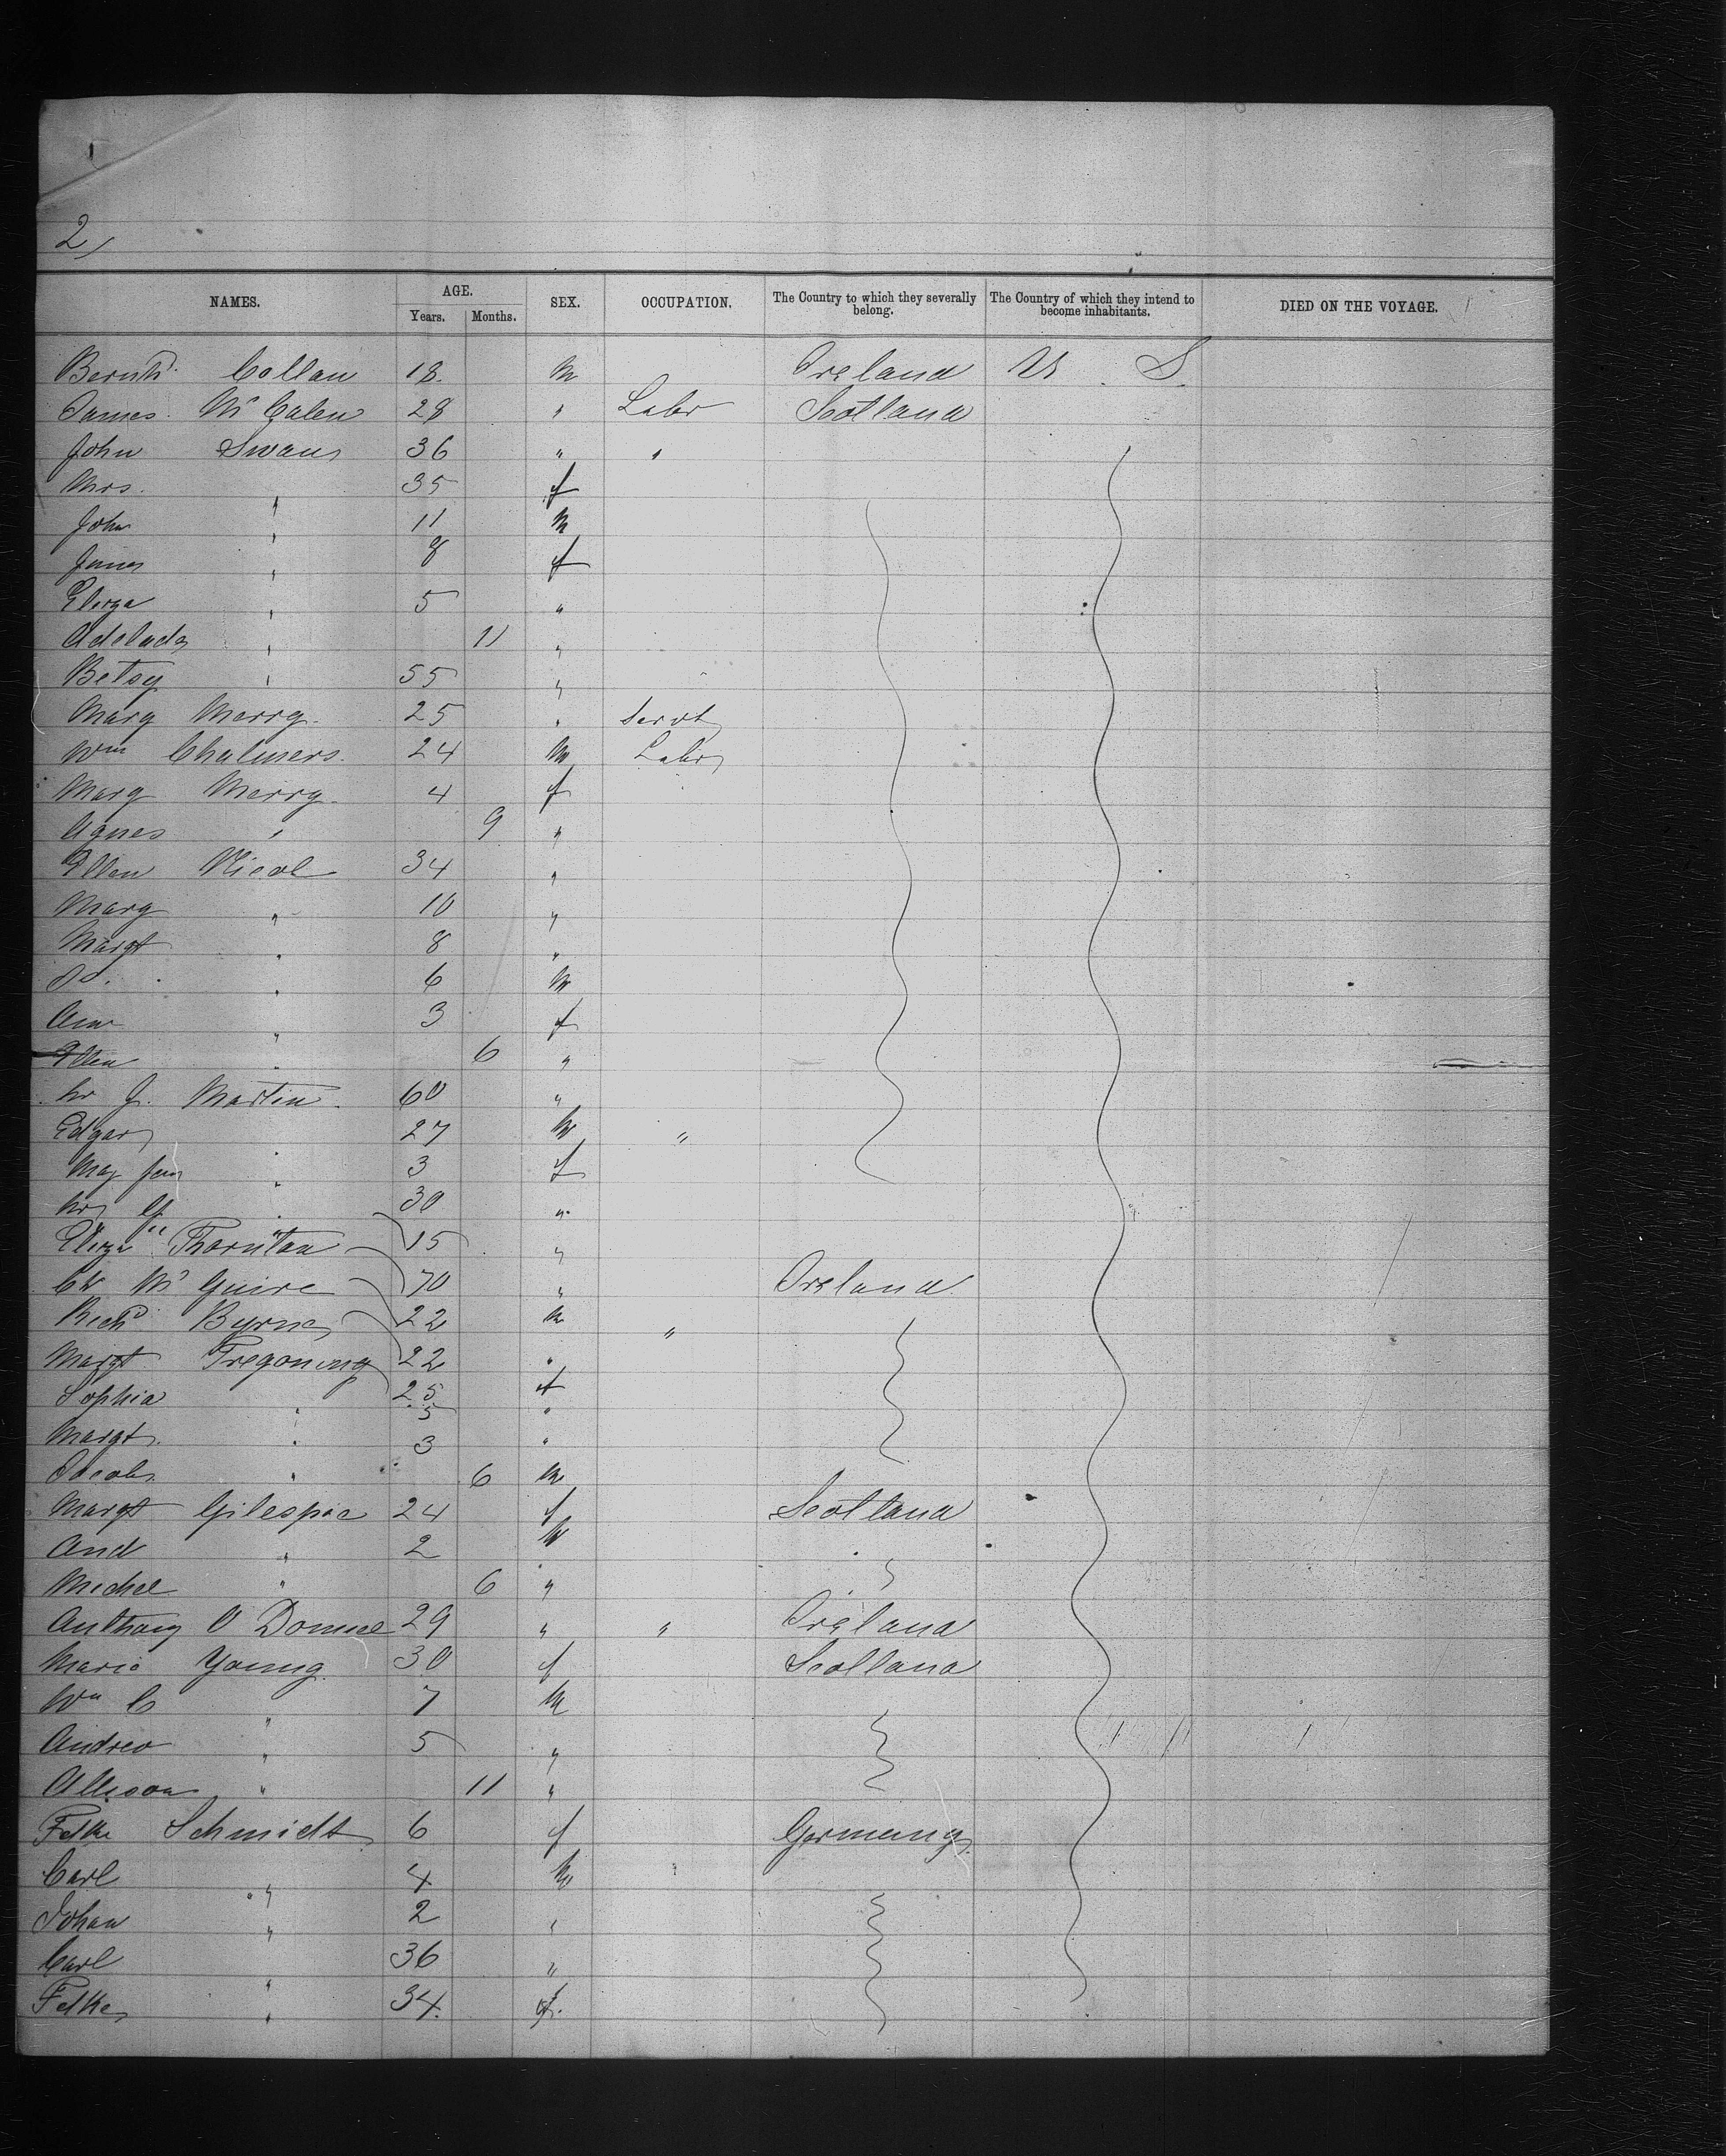 2/
NAMES. AGE. SEX. OCCUPATION. The Country to which they severally belong. The Country of which they intend to become inhabitants. DIED ON THE VOYAGE.
Years. Months.
Bernhd. Collan 18. M Ireland U. S.
James. Mc Calen 28 " Labr Scotland
John Swan 36 " "
Mrs. " 35 f
John " 11 M
James " 8 f
Eliza " 5 "
Adelade " 11 "
Betsy " 55 "
Mary Merry. 25 " Servt
Wm Chalmers. 24 M Labr
Mary Merry. 4 f
Agnes " 9 "
Ellen Nicol 34 "
Mary " 10 "
Margt " 8 "
Jo. " 6 M
Ann " 3 f
Ellen " 6 "
J. Martin. 60 "
Edgar 27 M "
May Jan " 3 f
" 30 "
Eliza Thornton 15 "
Mc Guire 70 " Ireland
Richd. Byrne 22 M "
Margt Tregoning 22 "
Sophia " 25 f
5 "
Margt. " 3 "
Jacob. " 6 M
Margt Gilespie 24 f Scotland
And " 2 M
Michel " 6 "
Anthony O Donnel 29 " " Ireland
Maria Young. 30 f Scotland
Wm C " 7 M
Andrew " 5 "
Allison " 11 "
Felke Schmidt 6 f Germany.
Carl " 4 M
Johan " 2 "
Carl " 36 "
Felke " 34. f.